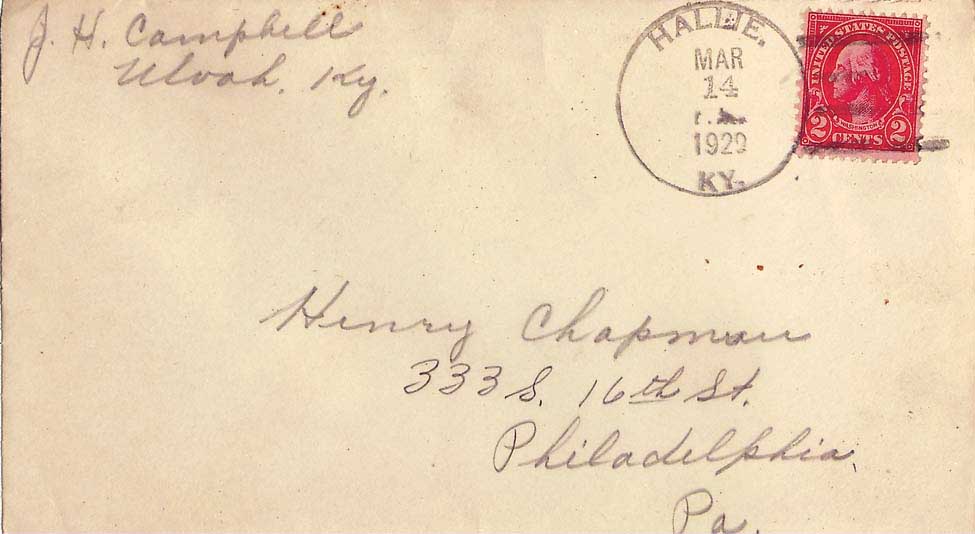 J. H. Campbell
Ulvah, Ky.
HALLIE.
MAR
14
1929
KY.
UNITED STATES POSTAGE
WASHINGTON
2 CENTS 2
Henry Chapman
333 S. 16th St.
Philadelphia,
Pa.